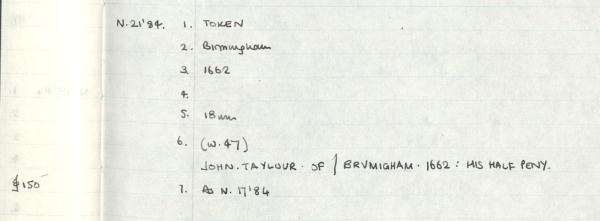 N.21'84. 1. TOKEN
2. Birmingham
3. 1662
4.
5. 18mm
6. (W.47)
JOHN.TAYLOUR. OF / BRVMIGHAM. 1662: HIS HALF PENY.
$150 7. As N.17'84